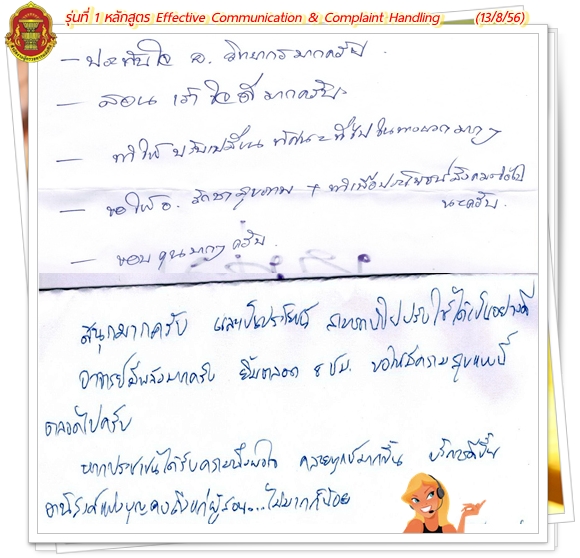 รุ่นที่ 1 หลักสูตร Effective Communication & Complaint Handling (13/8/56)
- ประทับใจ อ. วิทยากรมากครับ
- สอนเข้าใจดีมากครับ
- ทำให้ปรับเปลี่ยนทัศนะที่ ในทางบวกมากๆ
- ขอให้ อ. รักษาสุขภาพ + ทำเพื่อประโยชน์สังคมต่อไป
นะครับ.
- ขอบคุณมากๆ ครับ
สนุกมากครับ และเป็นประโยชน์ สามารถนำไปปรับใช้ได้เป็นอย่างดี
อาจารย์มีพลังมากครับ ยิ้มตลอด 8 ชม. ขอให้มีความสุขแบบนี้
ตลอดไปครับ
หากประชาชนได้รับความพึงพอใจ คลายทุกข์มากขึ้น บริการดีขึ้น
อานิสงส์แห่งบุญคงถึงแก่ผู้สอน...ไม่มากก็น้อย